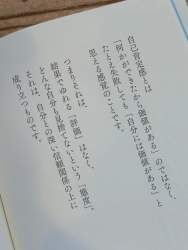 自己肯定感とは
「何かができたから価値がある」のではなく、
たとえ失敗しても「自分には価値がある」と
思える感覚のことです。
つまりそれは、
結果でゆれる「評価」ではなく、
どんな自分も見捨てないという「態度」。
それは、自分との深い信頼関係の上に
成り立つものです。